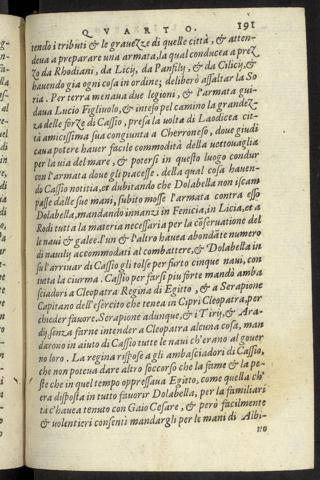 QVARTO. 191
tendo i tributi & le grauezze di quelle città, & atten-
deua a preparare una armata, la qual conducea a prez
zo da Rhodiani, da Licij, da Panfilij, & da Cilicij, &
hauendo gia ogni cosa in ordine; deliberò assaltar la So
ria. Per terra menaua due legioni, & l'armata gui-
daua Lucio Figliuolo, & inteso pel camino la grandez-
za delle forze di Cassio, presa la uolta di Laodicea cit-
tà amicissima sua congiunta a Cherroneso, doue giudi
caua potere hauer facile commodità della uettouaglia
per la uia del mare, & potersi in questo luogo condur
con l'armata doue gli piacesse. della qual cosa hauen-
do Cassio notitia, et dubitando che Dolabella non iscam
passe dalle sue mani, subito mosse l'armata contra esso
Dolabella, mandando innanzi in Fenicia, in Licia, et a
Rodi tutta la materia necessaria per la cōseruatione del
le naui & galee. l'un & l'altro hauea abondāte numero
di nauilij accommodati al combattere, & Dolabella in
su l'arriuar di Cassio gli tolse per furto cinque naui, con
tutta la ciurma. Cassio per farsi piu forte mandò amba
sciadori a Cleopatra Regina di Egitto, & a Serapione
Capitano dell'esercito che tenea in Cipri Cleopatra, per
chieder fauore. Serapione adunque, & i Tirij, & Ara-
dij, senza farne intender a Cleopatra alcuna cosa, man
darono in aiuto di Cassio tutte le naui ch'erano al gouer
no loro. La regina rispose a gli ambasciadori di Cassio,
che non poteua dare altro soccorso che la fame & la pe-
ste che in quel tempo oppressaua Egitto, come quella ch'
era disposta in tutto fauorir Dolabella, per la familiari
tà c'hauea tenuto con Gaio Cesare, & però facilmente
& uolentieri consentì mandargli per le mani di Albi-
no